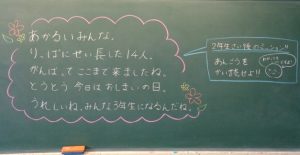 あかるいみんな。
り、ぱにせい長した14人。
がんば、てここまで来ましたね。
とうとう今日はおしまいの日。
うれしいね。みんな3年生になるんだね。
2年生さい後のミッション!!
あんごうを
かい読せよ!!